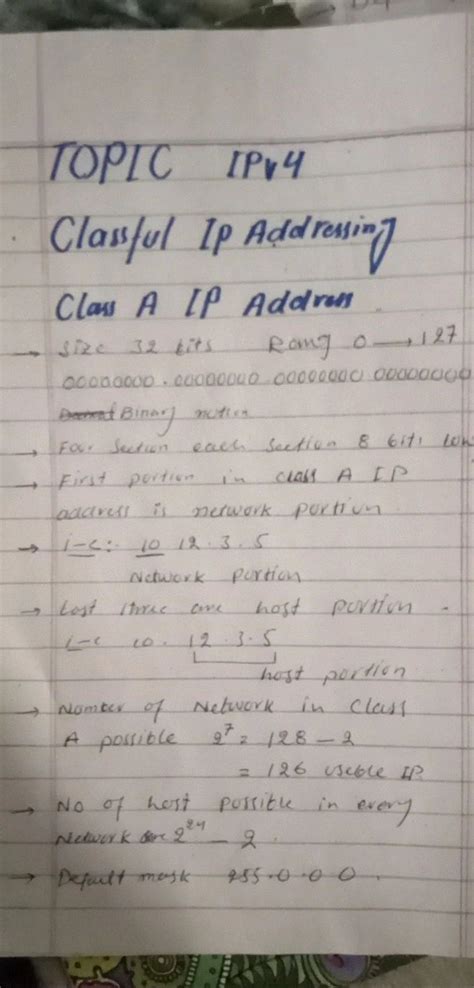 TOPIC IPv4
Classful Ip Addressing
Class A IP Address
→ Size 32 bits Rang 0 → 127
00000000.00000000.00000000.00000000
Binary notion
→ Four Section each Section 8 bits lon
→ First portion in class A IP
address is network portion.
→ i-e:- 10 12.3.5
Network portion
→ Last three are host portion.
i-e 10.12.3.5
host portion
→ Nomber of Network in Class
A possible 2⁷ = 128 - 2
= 126 useble IP.
→ No of host possible in every
Network 2²⁴ - 2.
→ Default mask 255.0.0.0.